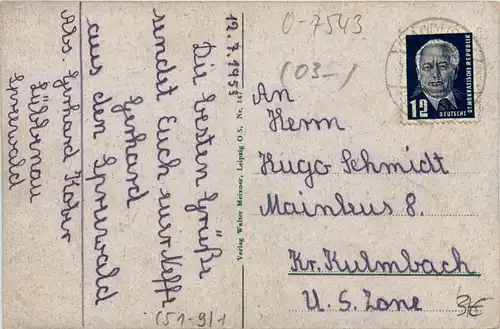 12.7.1953
Die besten Grüße
sendet Euch euer Neffe
Gerhard
aus dem Spreewald
Abs. Gerhard Kober
Lübbenau
Spreewald
(51-9/1
Verlag Walter Metzner, Leipzig O 5, Nr. 14
0-7543
(03-)
12
DEUTSCHE
DEMOKRATISCHE REPUBLIK
An
Herrn
Hugo Schmidt
Mainleus 8.
Kr. Kulmbach
U. S. Zone
3€